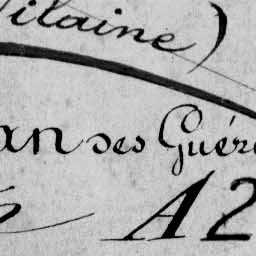 Vilaine)
an des Guér
A2